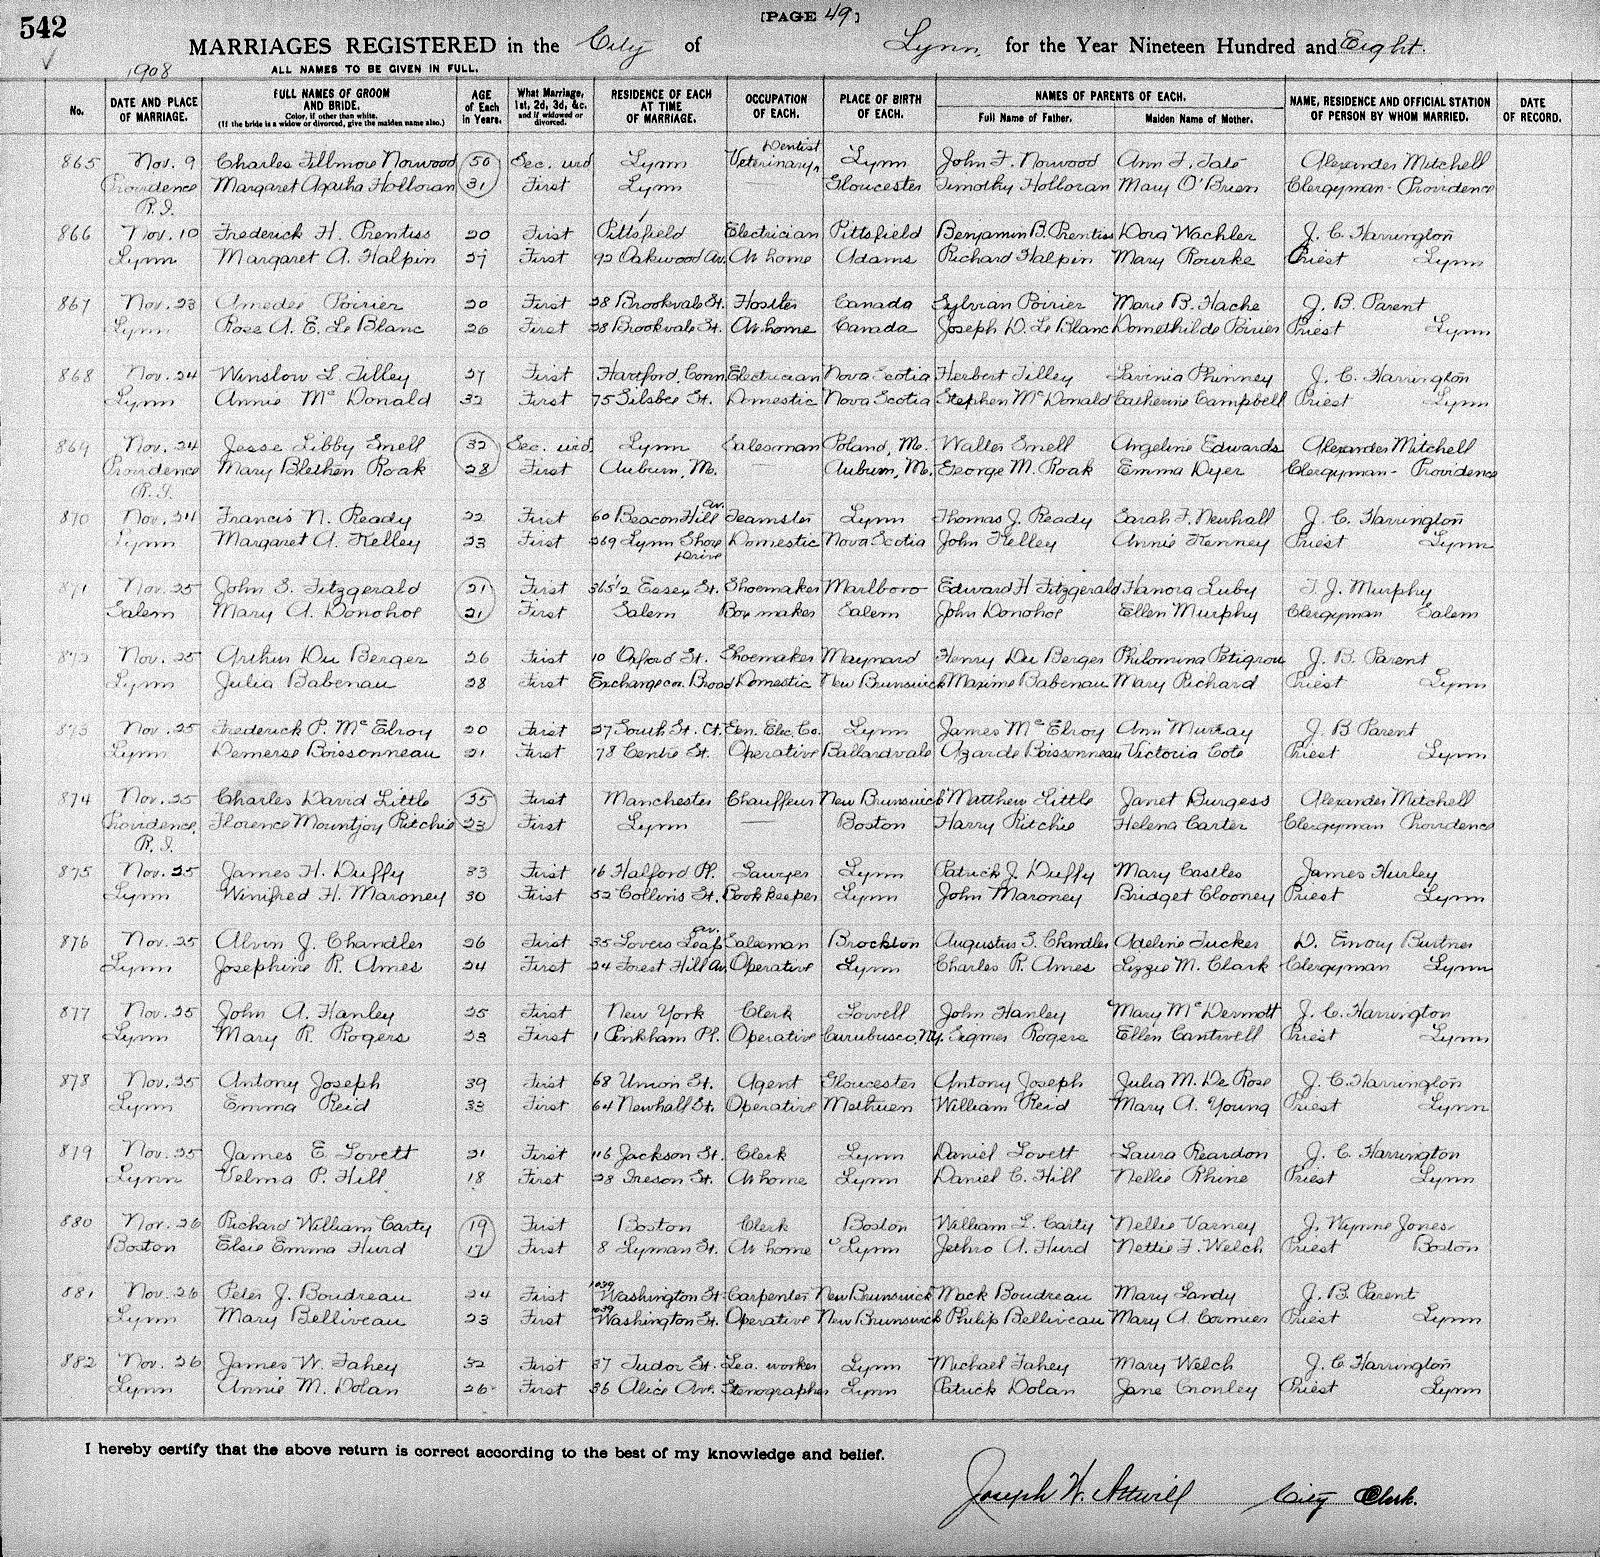 542
[PAGE 49]
MARRIAGES REGISTERED in the City of Lynn, for the Year Nineteen Hundred and Eight.
1908
ALL NAMES TO BE GIVEN IN FULL.
No. DATE AND PLACE OF MARRIAGE. FULL NAMES OF GROOM AND BRIDE. Color, if other than white. (If the bride is a widow or divorced, give the maiden name also.) AGE of Each in Years. What Marriage, 1st, 2d, 3d, &c. and if widowed or divorced. RESIDENCE OF EACH AT TIME OF MARRIAGE. OCCUPATION OF EACH. PLACE OF BIRTH OF EACH. NAMES OF PARENTS OF EACH. Full Name of Father. Maiden Name of Mother. NAME, RESIDENCE AND OFFICIAL STATION OF PERSON BY WHOM MARRIED. DATE OF RECORD.
865 Nov. 9 Charles Fillmore Norwood 50 Sec. wid Lynn Veterinary Dentist Lynn John F. Norwood Ann F. Tate Alexander Mitchell
Providence Margaret Agatha Holloran 31 First Lynn Gloucester Timothy Holloran Mary O'Brien Clergyman - Providence
R.I.
866 Nov. 10 Frederick H. Prentiss 20 First Pittsfield Electrician Pittsfield Benjamin B. Prentiss Dora Wachler J. C. Harrington
Lynn Margaret A. Halpin 27 First 92 Oakwood Av. At home Adams Richard Halpin Mary Rourke Priest Lynn
867 Nov. 23 Amedee Poirier 20 First 28 Brookvale St. Hostler Canada Sylvian Poirier Marie B. Hache J. B. Parent
Lynn Rose A. E. Le Blanc 26 First 28 Brookvale St. At home Canada Joseph D. Le Blanc Domethilde Poirier Priest Lynn
868 Nov. 24 Winslow L. Tilley 27 First Hartford, Conn Electrician Nova Scotia Herbert Tilley Lavinia Phinney J. C. Harrington
Lynn Annie Mc Donald 32 First 75 Silsbee St. Domestic Nova Scotia Stephen Mc Donald Catherine Campbell Priest Lynn
869 Nov. 24 Jesse Libby Snell 32 Sec. wid. Lynn Salesman Poland, Me. Walter Snell Angeline Edwards Alexander Mitchell
Providence Mary Blethen Roak 28 First Auburn, Me. Auburn, Me. George M. Roak Emma Dyer Clergyman - Providence
R.I.
870 Nov. 24 Francis N. Ready 22 First 60 Beacon Hill av. Teamster Lynn Thomas J. Ready Sarah F. Newhall J. C. Harrington
Lynn Margaret A. Kelley 23 First 269 Lynn Shore Drive Domestic Nova Scotia John Kelley Annie Kenney Priest Lynn
871 Nov. 25 John S. Fitzgerald 21 First 365½ Essex St. Shoemaker Marlboro Edward H Fitzgerald Hanora Luby T. J. Murphy
Salem Mary A. Donohoe 21 First Salem Box maker Salem John Donohoe Ellen Murphy Clergyman Salem
872 Nov. 25 Arthur Du Berger 26 First 10 Oxford St. Shoemaker Maynard Henry Du Berger Philomina Petigrou J. B. Parent
Lynn Julia Babenau 28 First Exchange cor. Broad Domestic New Brunswick Maxime Babenau Mary Richard Priest Lynn
873 Nov. 25 Frederick P. Mc Elroy 20 First 27 South St. Ct. Gen. Elec. Co. Lynn James Mc Elroy Ann Murray J. B Parent
Lynn Demerse Boissonneau 21 First 78 Centre St. Operative Ballardvale Azarde Boissonneau Victoria Cote Priest Lynn
874 Nov. 25 Charles David Little 35 First Manchester Chauffeur New Brunswick Matthew Little Janet Burgess Alexander Mitchell
Providence, Florence Mountjoy Ritchie 23 First Lynn Boston Harry Ritchie Helena Carter Clergyman Providence
R.I.
875 Nov. 25 James H. Duffy 33 First 16 Halford Pl. Lawyer Lynn Patrick J. Duffy Mary Castles James Hurley
Lynn Winifred H. Maroney 30 First 52 Collins St. Book keeper Lynn John Maroney Bridget Clooney Priest Lynn
876 Nov. 25 Alvin J. Chandler 26 First 35 Lovers Leap av. Salesman Brockton Augustus S. Chandler Adeline Tucker D. Emory Burtner
Lynn Josephine R. Ames 24 First 24 Forest Hill Av. Operative Lynn Charles R. Ames Lizzie M. Clark Clergyman Lynn
877 Nov. 25 John A. Hanley 25 First New York Clerk Lowell John Hanley Mary Mc Dermott J. C. Harrington
Lynn Mary R. Rogers 23 First 1 Pinkham Pl. Operative Curubusco, N.Y. Rogers Ellen Cantwell Priest Lynn
878 Nov. 25 Antony Joseph 39 First 68 Union St. Agent Gloucester Antony Joseph Julia M. De Rose J. C. Harrington
Lynn Emma Reid 33 First 64 Newhall St. Operative Methuen William Reid Mary A. Young Priest Lynn
879 Nov. 25 James E. Lovett 21 First 116 Jackson St. Clerk Lynn Daniel Lovett Laura Reardon J. C. Harrington
Lynn Velma P. Hill 18 First 28 Ireson St. At home Lynn Daniel C. Hill Nellie Rhine Priest Lynn
880 Nov. 26 Richard William Carty 19 First Boston Clerk Boston William L. Carty Nellie Varney J. Wynne Jones
Boston Elsie Emma Hurd 17 First 8 Lyman St. At home Lynn Jethro A. Hurd Nettie F. Welch Priest Boston
881 Nov. 26 Peter J. Boudreau 24 First 1039 Washington St. Carpenter New Brunswick Mack Boudreau Mary Landy J. B. Parent
Lynn Mary Belliveau 23 First 1039 Washington St. Operative New Brunswick Philip Belliveau Mary A. Cormier Priest Lynn
882 Nov. 26 James W. Fahey 32 First 37 Tudor St. Lea. worker Lynn Michael Fahey Mary Welch J. C Harrington
Lynn Annie M. Dolan 26 First 36 Alice Av. Stenographer Lynn Patrick Dolan Jane Cronley Priest Lynn
I hereby certify that the above return is correct according to the best of my knowledge and belief.
Joseph W. Attwill City Clerk.